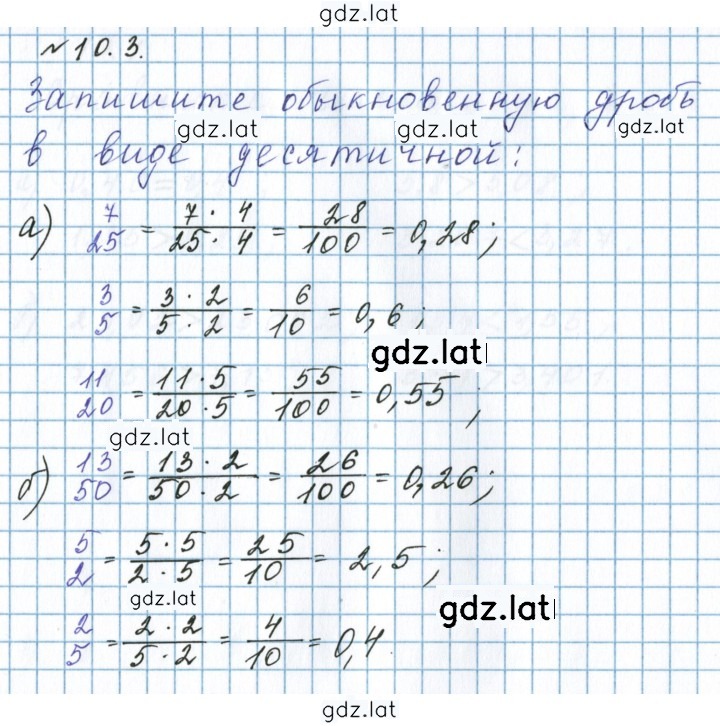 gdz.lat
№10.3.
Запишите обыкновенную дробь
gdz.lat gdz.lat gdz.lat
в виде десятичной:
а) 7/25 = 7·4/25·4 = 28/100 = 0,28;
3/5 = 3·2/5·2 = 6/10 = 0,6;
gdz.lat
11/20 = 11·5/20·5 = 55/100 = 0,55;
gdz.lat
б) 13/50 = 13·2/50·2 = 26/100 = 0,26;
5/2 = 5·5/2·5 = 25/10 = 2,5;
gdz.lat gdz.lat
2/5 = 2·2/5·2 = 4/10 = 0,4.
gdz.lat